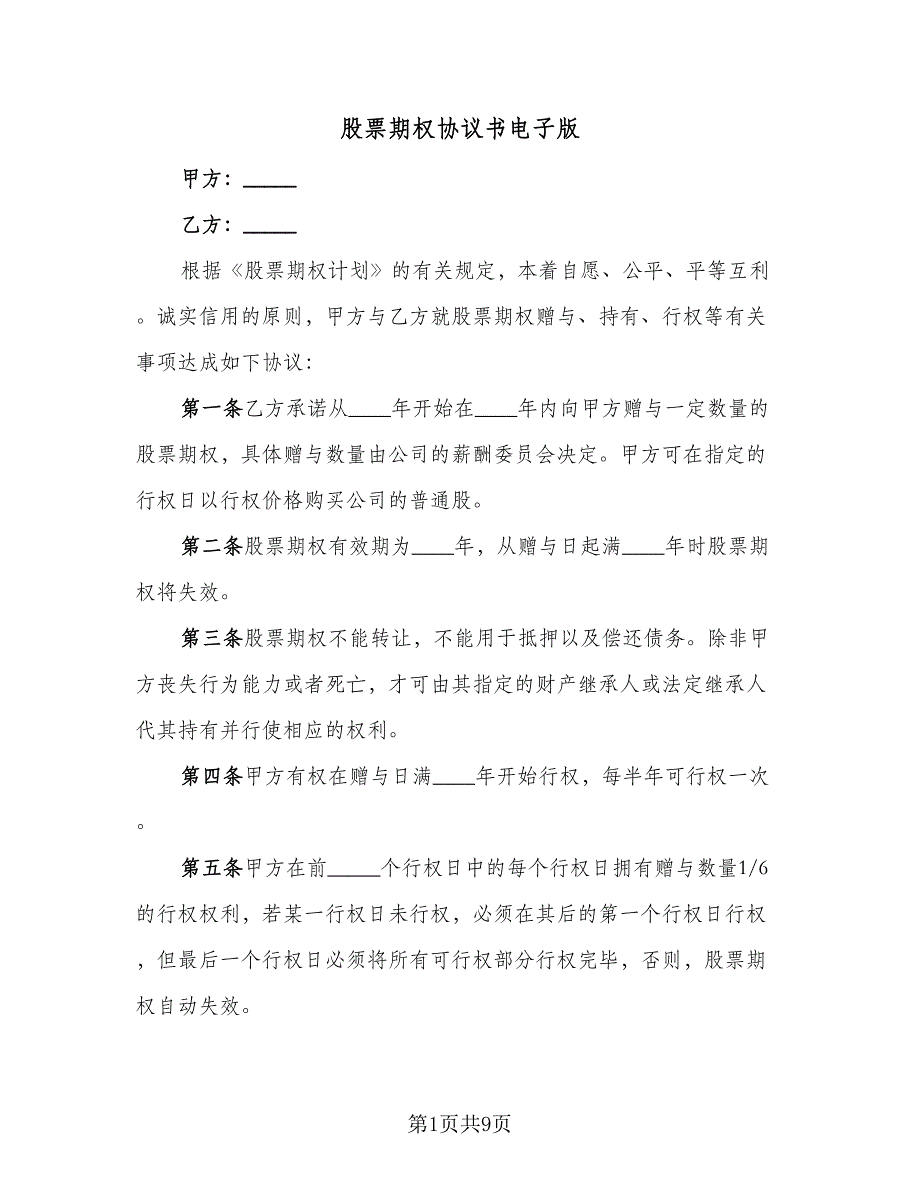 股票期权协议书电子版
甲方：_____
乙方：_____
根据《股票期权计划》的有关规定，本着自愿、公平、平等互利
。诚实信用的原则，甲方与乙方就股票期权赠与、持有、行权等有关
事项达成如下协议：
第一条乙方承诺从____年开始在____年内向甲方赠与一定数量的
股票期权，具体赠与数量由公司的薪酬委员会决定。甲方可在指定的
行权日以行权价格购买公司的普通股。
第二条股票期权有效期为____年，从赠与日起满____年时股票期
权将失效。
第三条股票期权不能转让，不能用于抵押以及偿还债务。除非甲
方丧失行为能力或者死亡，才可由其指定的财产继承人或法定继承人
代其持有并行使相应的权利。
第四条甲方有权在赠与日满____年开始行权，每半年可行权一次
。
第五条甲方在前_____个行权日中的每个行权日拥有赠与数量1/6
的行权权利，若某一行权日未行权，必须在其后的第一个行权日行权
，但最后一个行权日必须将所有可行权部分行权完毕，否则，股票期
权自动失效。
第1页共9页